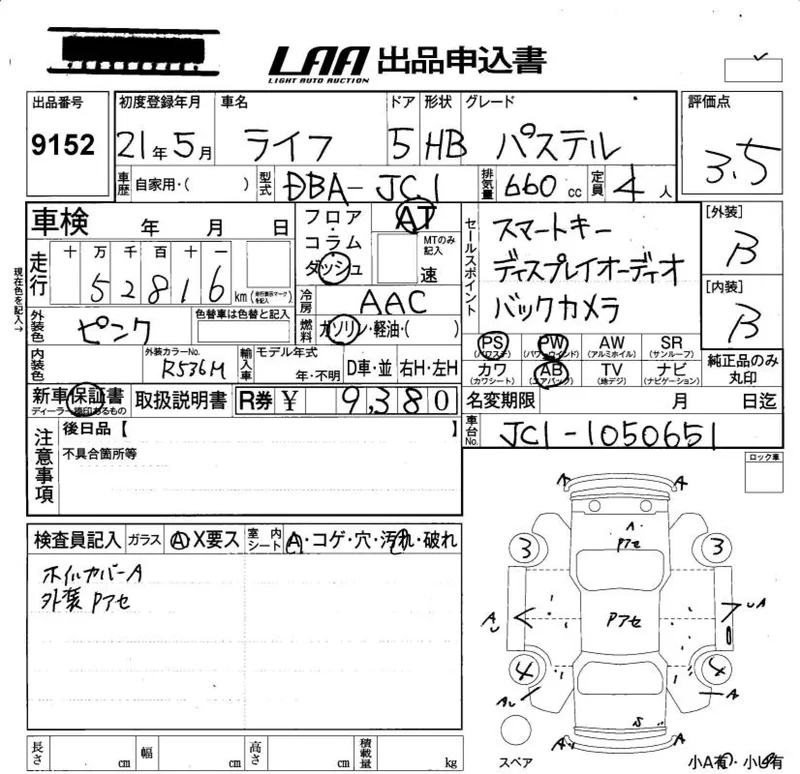 LAA 出品申込書
LIGHT AUTO AUCTION
出品番号 初度登録年月 車名 ドア 形状 グレード 評価点
9152 21年5月 ライフ 5 HB パステル 3.5
車歴 自家用・( ) 型式 DBA-JC1 排気量 660cc 定員 4人
車検 年 月 日
フロア・コラム・ダッシュ AT
MTのみ記入 速
セールスポイント
スマートキー
ディスプレイオーディオ
バックカメラ
[外装]
B
[内装]
B
現在色を記入→
走行 十 万 千 百 十 一
52816km (走行表示マークを記入)
冷房 AAC
燃料 ガソリン・軽油・( )
外装色 ピンク 色替車は色替と記入
PS (パワステ) PW (パワーウインド) AW (アルミホイル) SR (サンルーフ)
カワ (カワシート) AB (エアバック) TV (地デジ) ナビ (ナビゲーション)
純正品のみ丸印
内装色 外装カラーNo. R536M 輸入車 モデル年式 年・不明 D車・並 右H・左H
新車保証書 ディーラー捺印あるもの 取扱説明書 R券 ¥ 9,380
名変期限 月 日迄
車台No. JC1-1050651
注意事項
後日品【 】
不具合箇所等
ロック車
検査員記入 ガラス A X要ス 室内シート A・コゲ・穴・汚れ・破れ
ホイルカバーA
外装 Pアセ
A A
A
Pアセ
3 3
A Pアセ A
4 4
A A
A A
スペア
小A有・小U有
長さ cm 幅 cm 高さ cm 積載量 kg